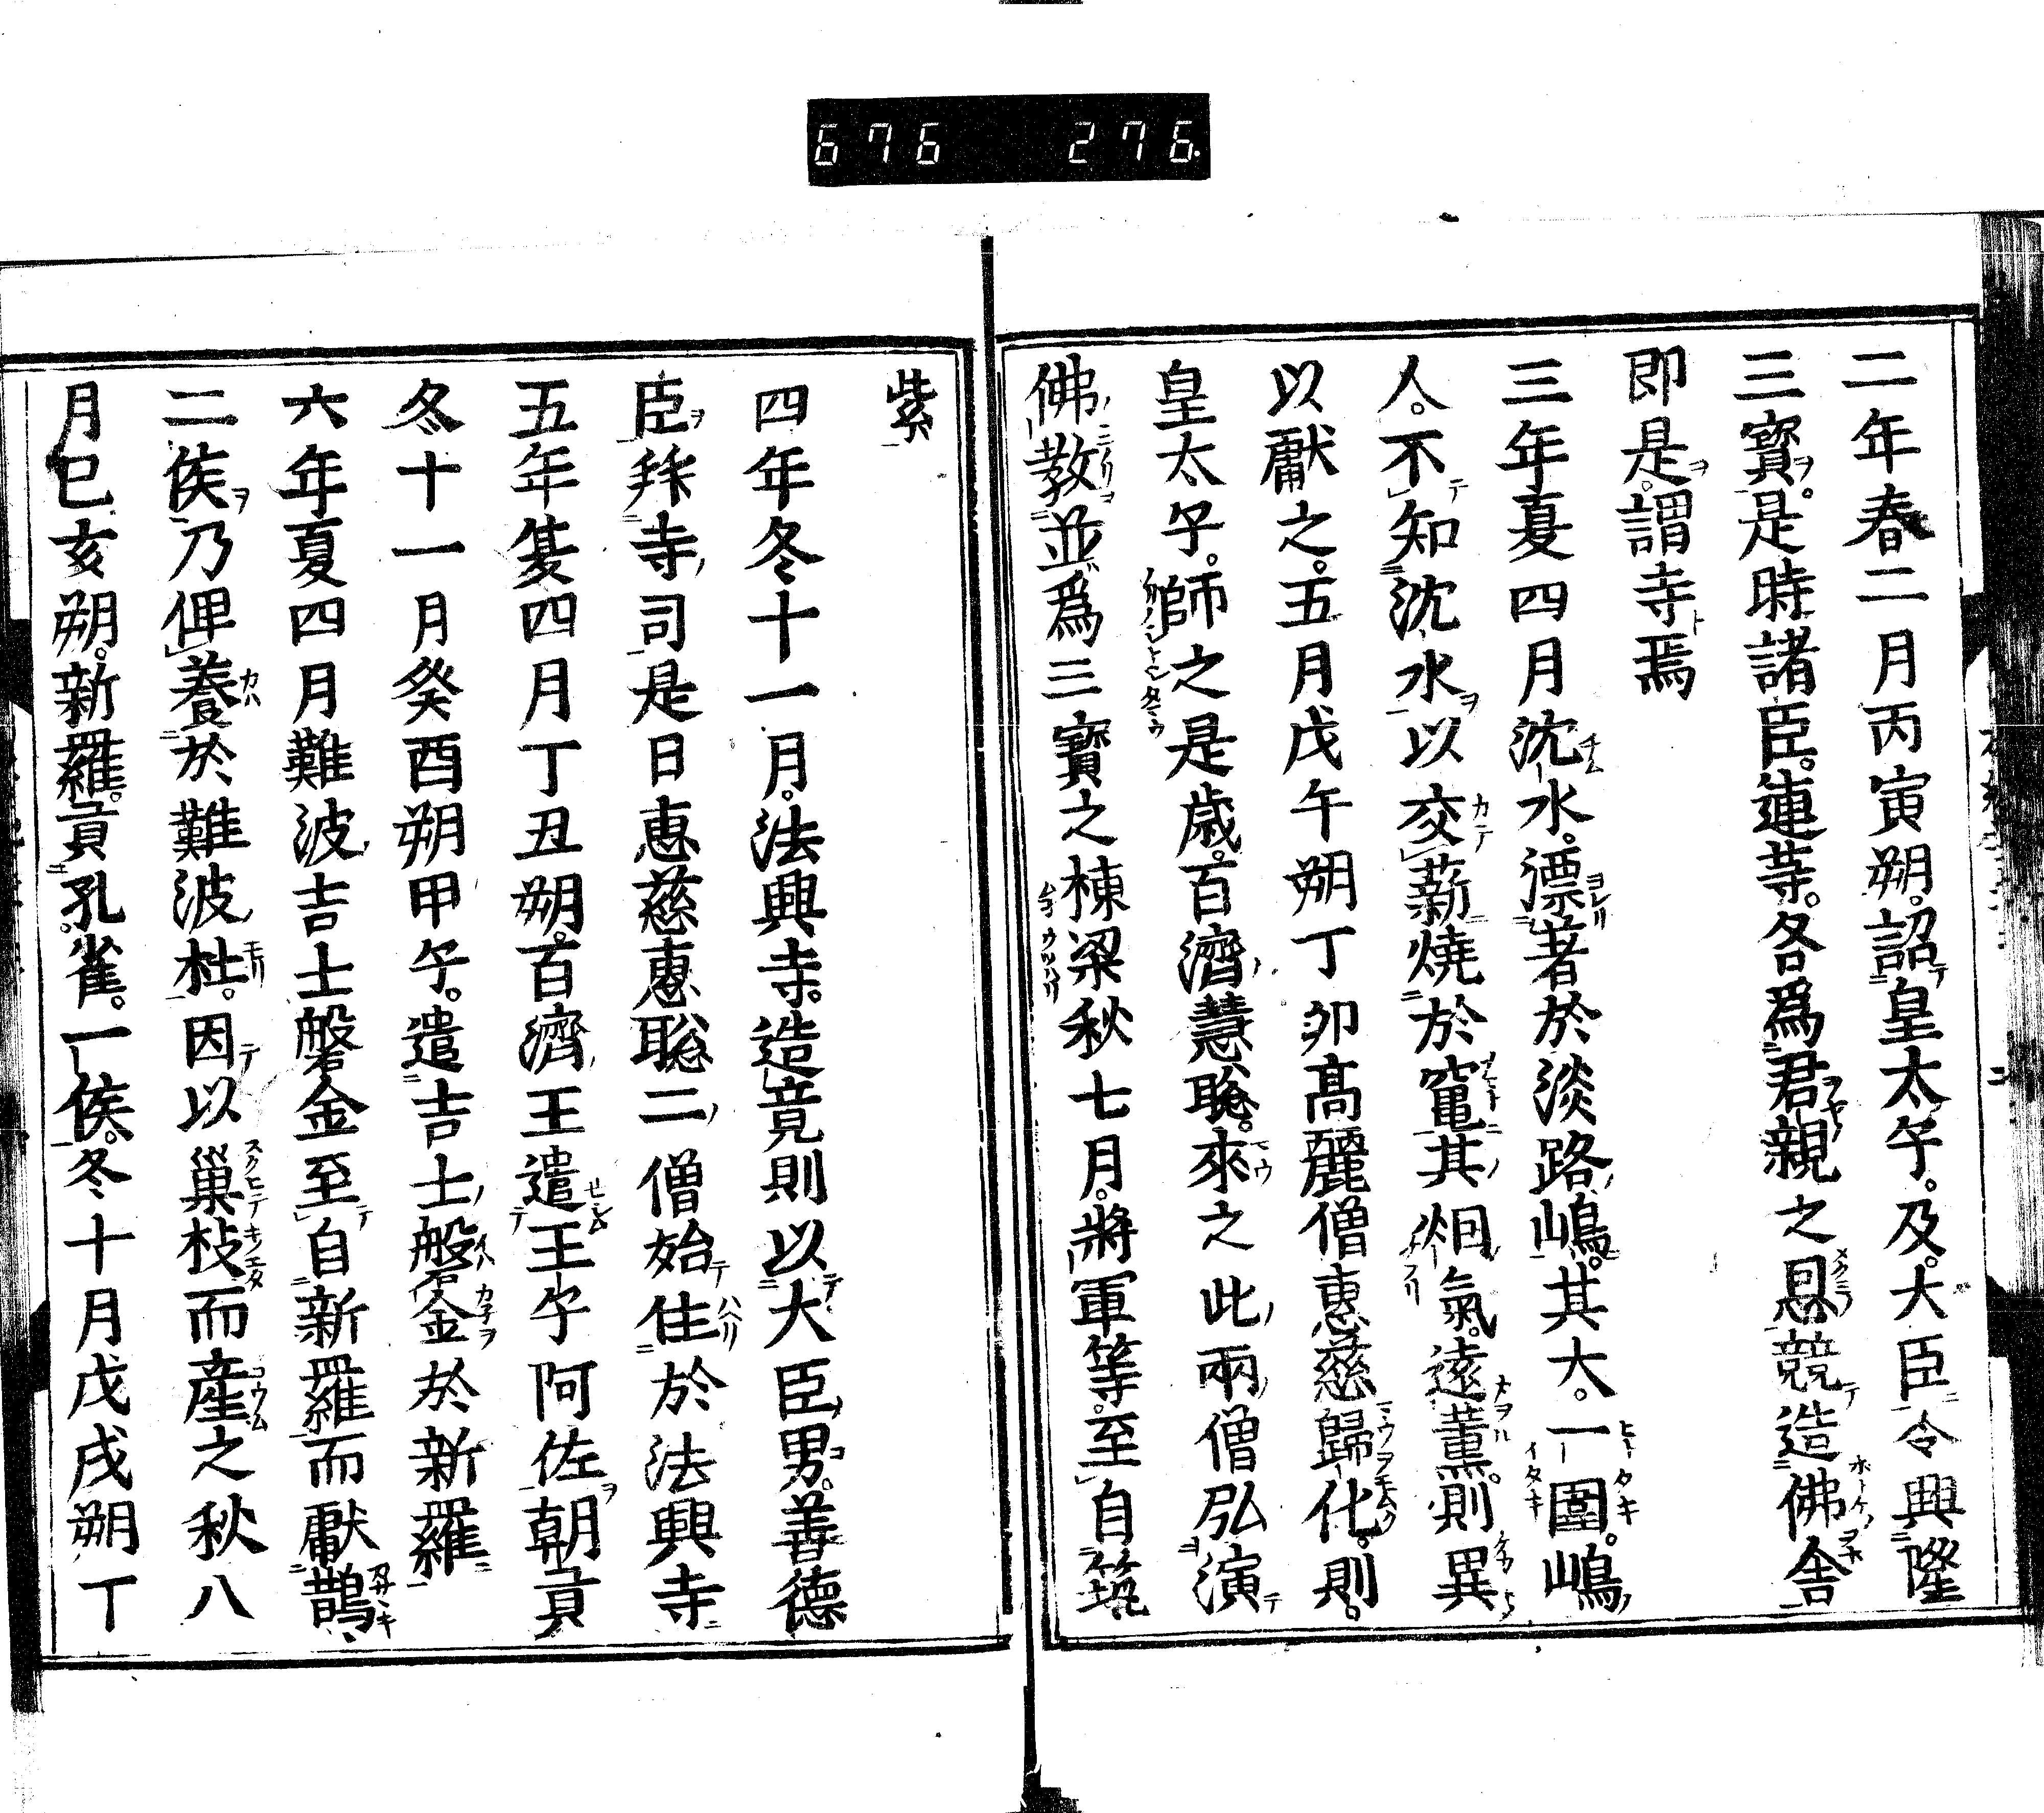 676 276
二年春二月丙寅朔。詔皇太子。及。大臣令興隆
三寶。是時諸臣。連等。各爲君親之恩競造佛舎
即是。謂寺焉
三年夏四月沈水。漂著於淡路嶋。其大。一圍。嶋
人。不知沈水以交薪燒於竃其烟氣。遠薫。則異
以獻之。五月戊午朔丁卯髙麗僧惠慈歸化。則。
皇太子。師之是歳。百濟慧聡。來之此兩僧弘演
佛教並爲三寶之棟梁秋七月。將軍等。至自筑
紫
四年冬十一月。法興寺。造竟則以大臣男。善德
臣拜寺司是日惠慈惠聡二僧始住於法興寺
五年夏四月丁丑朔。百濟王遣王子阿佐朝貢
冬十一月癸酉朔甲午。遣吉士磐金於新羅
六年夏四月難波吉士磐金至自新羅而獻鵲
二侯乃俾養於難波杜。因以巢枝而産之秋八
月巳亥朔。新羅。貢孔。雀。一侯。冬十月戊戌朔丁